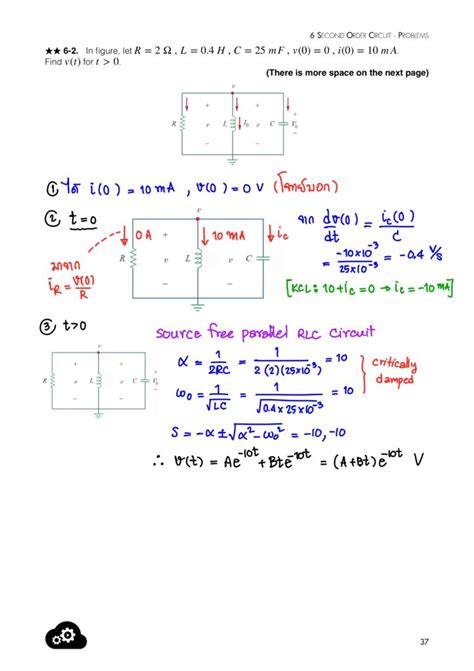 6 SECOND ORDER CIRCUIT - PROBLEMS
★★ 6-2. In figure, let R = 2 Ω , L = 0.4 H , C = 25 mF , v(0) = 0 , i(0) = 10 mA.
Find v(t) for t > 0.
(There is more space on the next page)
v
R + v − L I₀ + v − C + V₀ −
① ได้ i(0) = 10 mA , v(0) = 0 V (โจทย์บอก)
② t=0
จาก dv(0)/dt = i_c(0)/C
v
0 A + 10 mA + i_c
R v L v C
− −
= -10×10⁻³/25×10⁻³ = -0.4 V/s
มาจาก
i_R = v(0)/R
[KCL: 10+i_c = 0 → i_c = -10 mA]
③ t>0
source free parallel RLC circuit
v
R + v − L + v − C + V₀ −
α = 1/2RC = 1/2(2)(25×10⁻³) = 10
ω₀ = 1/√LC = 1/√0.4×25×10⁻³ = 10
critically
damped
S = -α ± √α²-ω₀² = -10, -10
∴ v(t) = Ae⁻¹⁰ᵗ + Bte⁻¹⁰ᵗ = (A+Bt)e⁻¹⁰ᵗ V
37